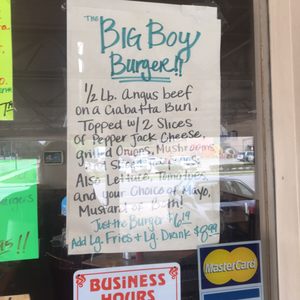 THE
BIG BOY
BURGER!!
1/2 Lb. Angus beef
on a Ciabatta Bun,
Topped w/ 2 Slices
of Pepper Jack Cheese,
grilled Onions, Mushrooms
Also Lettuce, Tomatoes
and your Choice of Mayo,
Mustard or Both!
Just the Burger $6.19
Add Lg. Fries + Lg. Drink $8.99
BUSINESS
HOURS
MasterCard